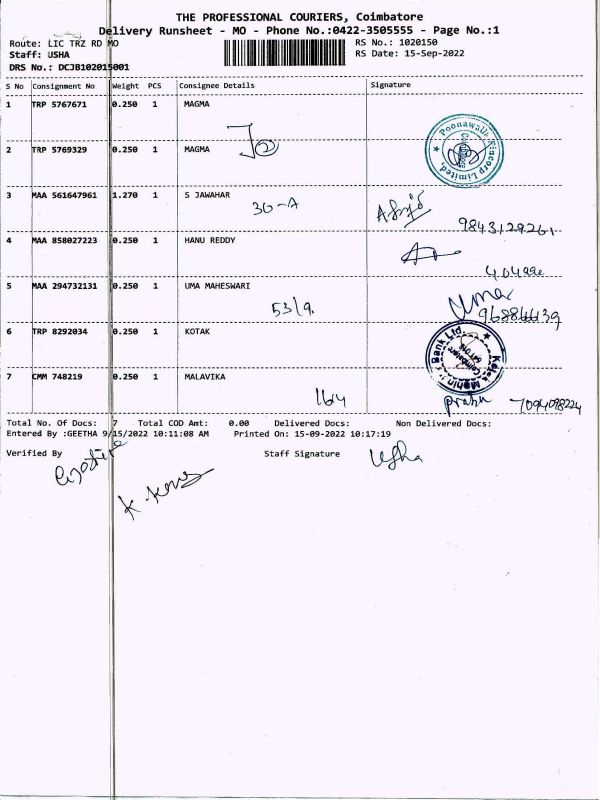 THE PROFESSIONAL COURIERS, Coimbatore
Delivery Runsheet - MO - Phone No.:0422-3505555 - Page No.:1
Route: LIC TRZ RD MO
RS No.: 1020150
Staff: USHA
RS Date: 15-Sep-2022
DRS No.: DCJB102015001
S No Consignment No Weight PCS Consignee Details Signature
1 TRP 5767671 0.250 1 MAGMA
Poonawalla Fincorp Limited.
2 TRP 5769329 0.250 1 MAGMA
3 MAA 561647961 1.270 1 S JAWAHAR
30-A
9843129261
4 MAA 858027223 0.250 1 HANU REDDY
5 MAA 294732131 0.250 1 UMA MAHESWARI
53/9. Uma
6 TRP 8292034 0.250 1 KOTAK
Kotak Mahindra Bank Ltd. Coimbatore
7 CMM 748219 0.250 1 MALAVIKA
164 Prabu 7094098224
Total No. Of Docs: 7 Total COD Amt: 0.00 Delivered Docs: Non Delivered Docs:
Entered By :GEETHA 9/15/2022 10:11:08 AM Printed On: 15-09-2022 10:17:19
Verified By Staff Signature Usha